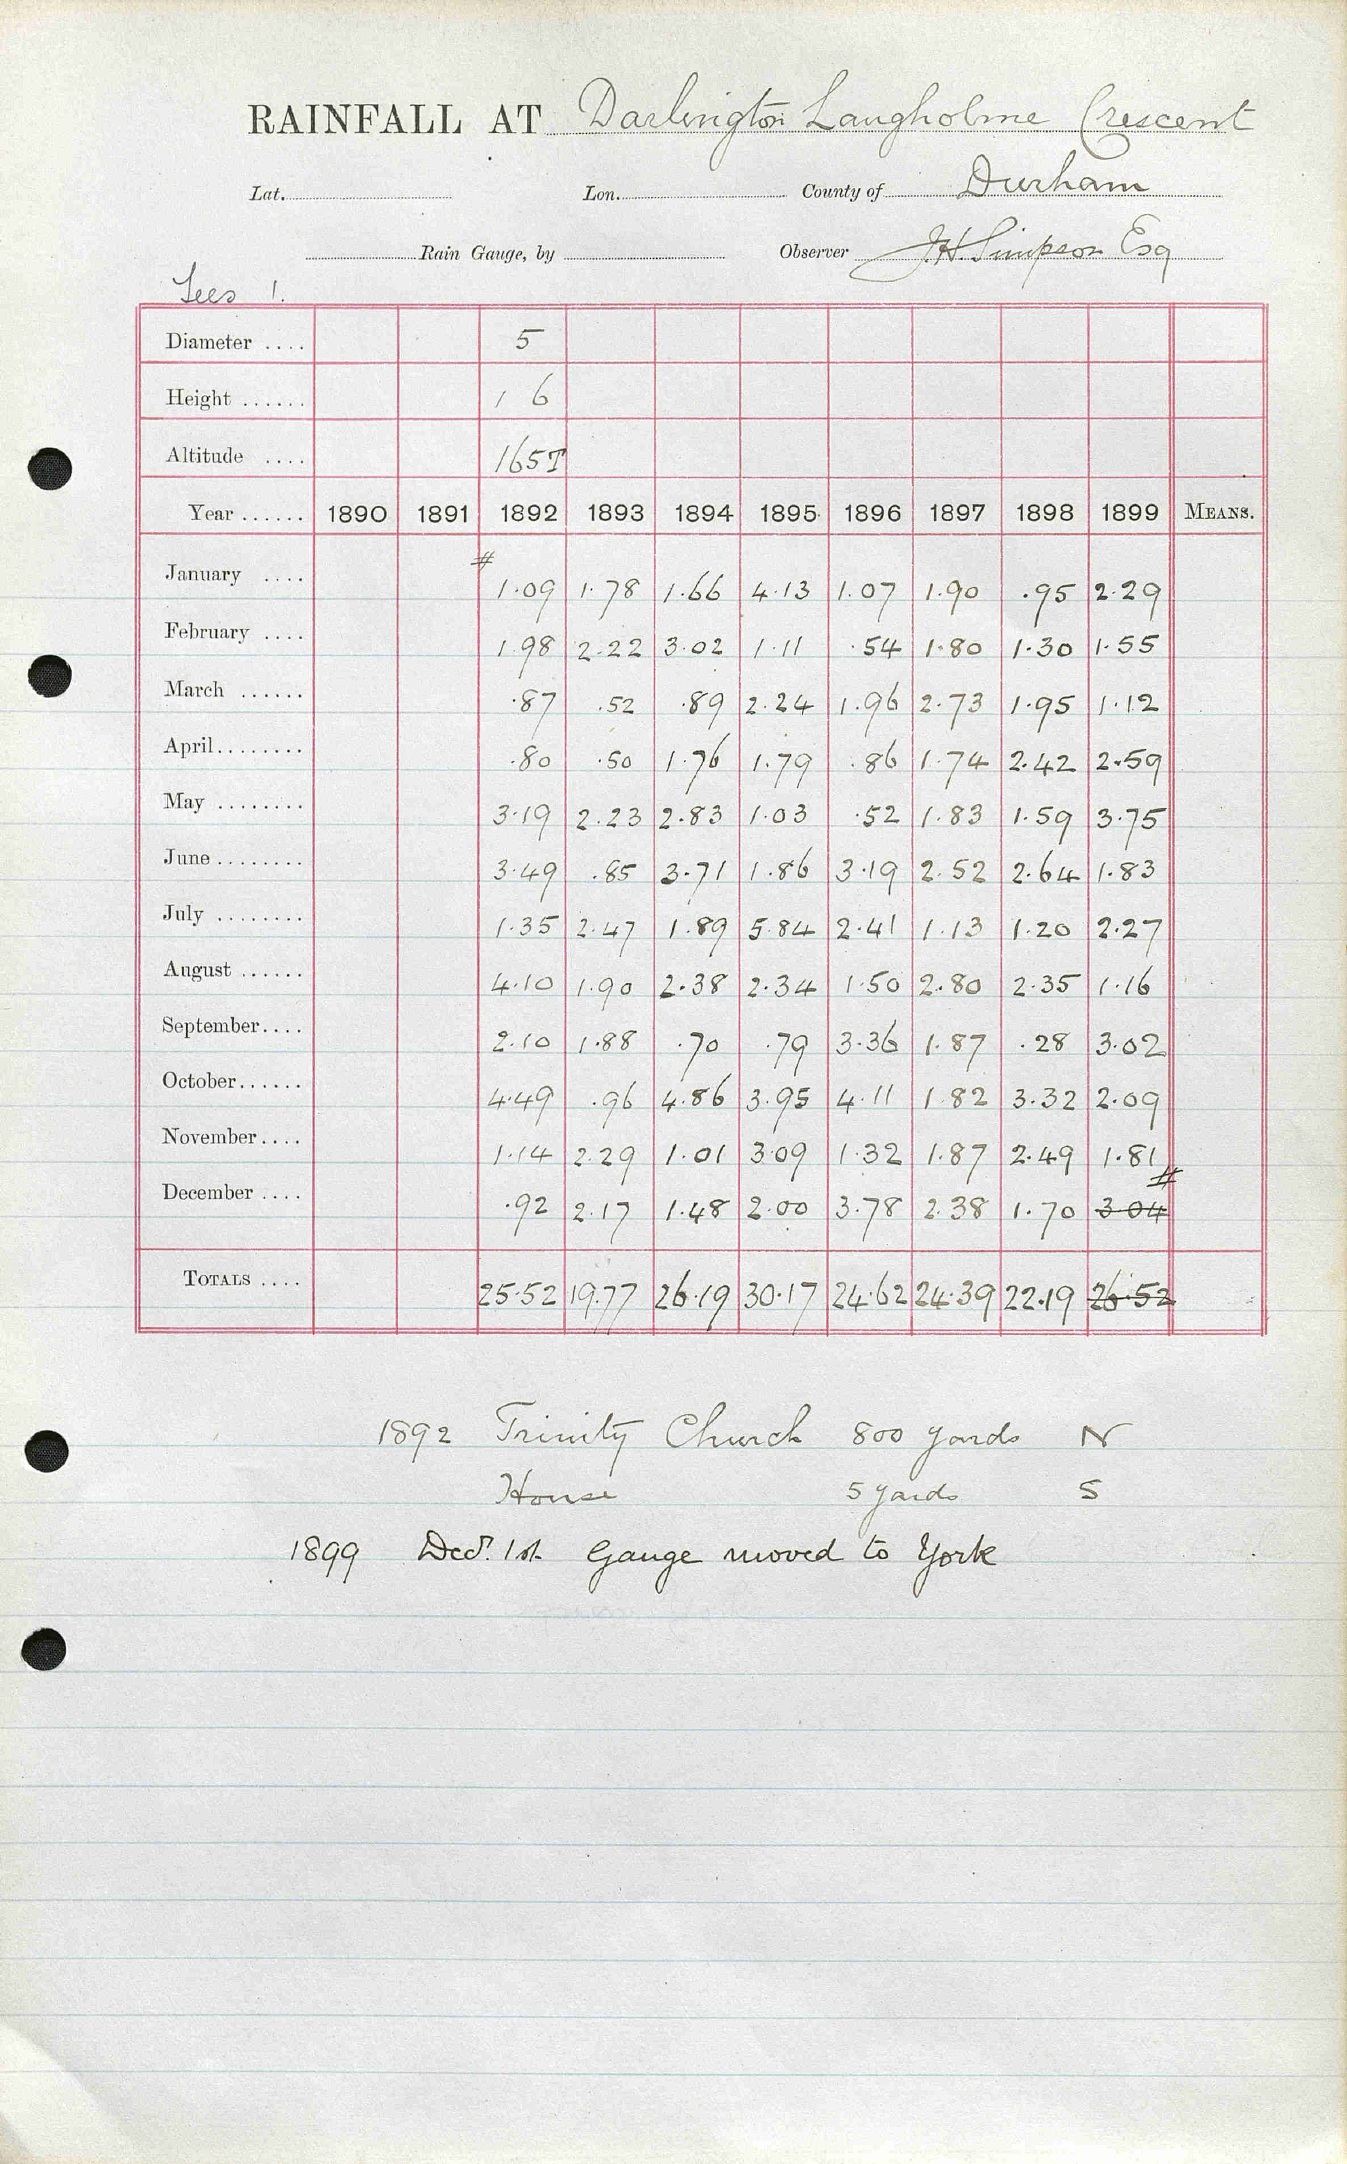 RAINFALL AT Darlington Langholme Crescent
Lat. Lon. County of Durham
Rain Gauge, by Observer J.H. Simpson Esq
Tees 1.
Diameter .... 5
Height ...... 1 6
Altitude .... 165T
Year ...... 1890 1891 1892 1893 1894 1895 1896 1897 1898 1899 MEANS.
January .... # 1.09 1.78 1.66 4.13 1.07 1.90 .95 2.29
February .... 1.98 2.22 3.02 1.11 .54 1.80 1.30 1.55
March ...... .87 .52 .89 2.24 1.96 2.73 1.95 1.12
April ........ .80 .50 1.76 1.79 .86 1.74 2.42 2.59
May ........ 3.19 2.23 2.83 1.03 .52 1.83 1.59 3.75
June ........ 3.49 .85 3.71 1.86 3.19 2.52 2.64 1.83
July ........ 1.35 2.47 1.89 5.84 2.41 1.13 1.20 2.27
August ...... 4.10 1.90 2.38 2.34 1.50 2.80 2.35 1.16
September .... 2.10 1.88 .70 .79 3.36 1.87 .28 3.02
October ...... 4.49 .96 4.86 3.95 4.11 1.82 3.32 2.09
November .... 1.14 2.29 1.01 3.09 1.32 1.87 2.49 1.81
December .... .92 2.17 1.48 2.00 3.78 2.38 1.70 3.04 #
TOTALS .... 25.52 19.77 26.19 30.17 24.62 24.39 22.19 26.52
1892 Trinity Church 800 yards N
House 5 yards S
1899 Decr. 1st. Gauge moved to York